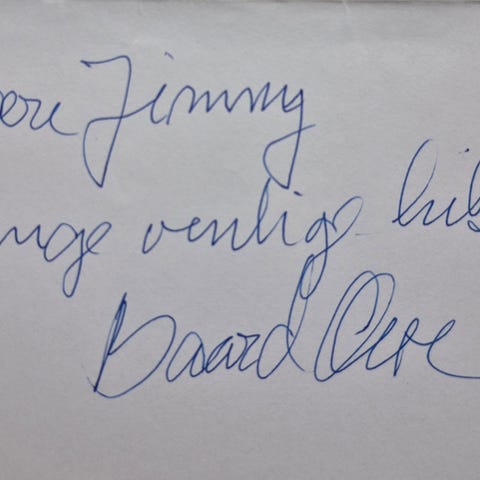 ære Jimmy
nge venlige hils
Baard Owe